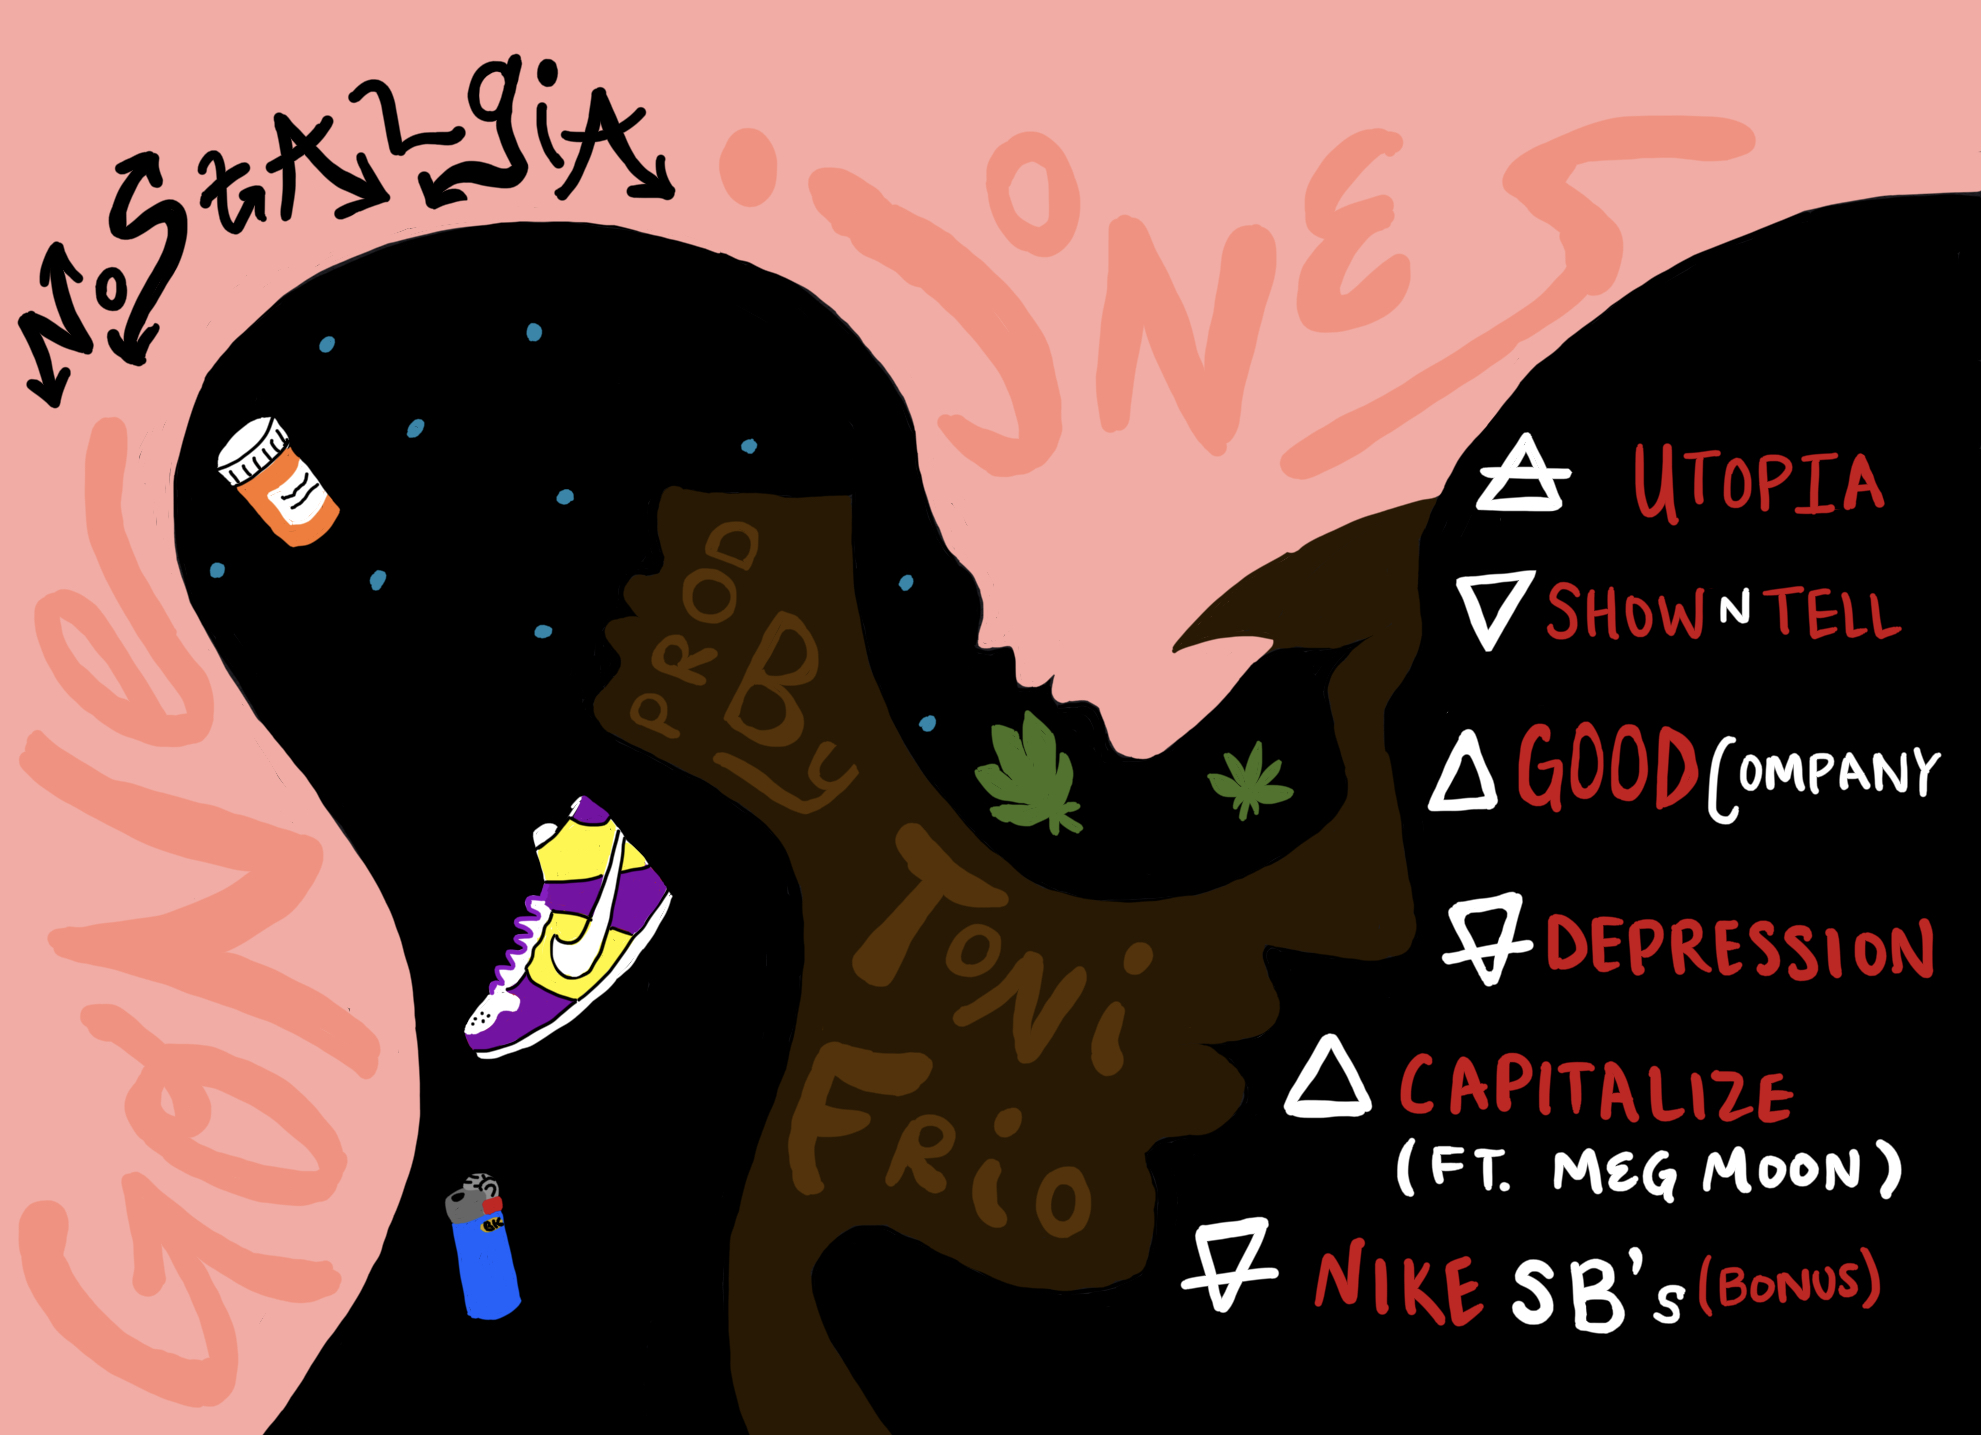 NOSTALGIA
GONE
JONES
PROD
By
TONI
FRIO
UTOPIA
SHOW N TELL
GOOD COMPANY
DEPRESSION
CAPITALIZE
(FT. MEG MOON)
NIKE SB's (BONUS)
BIC